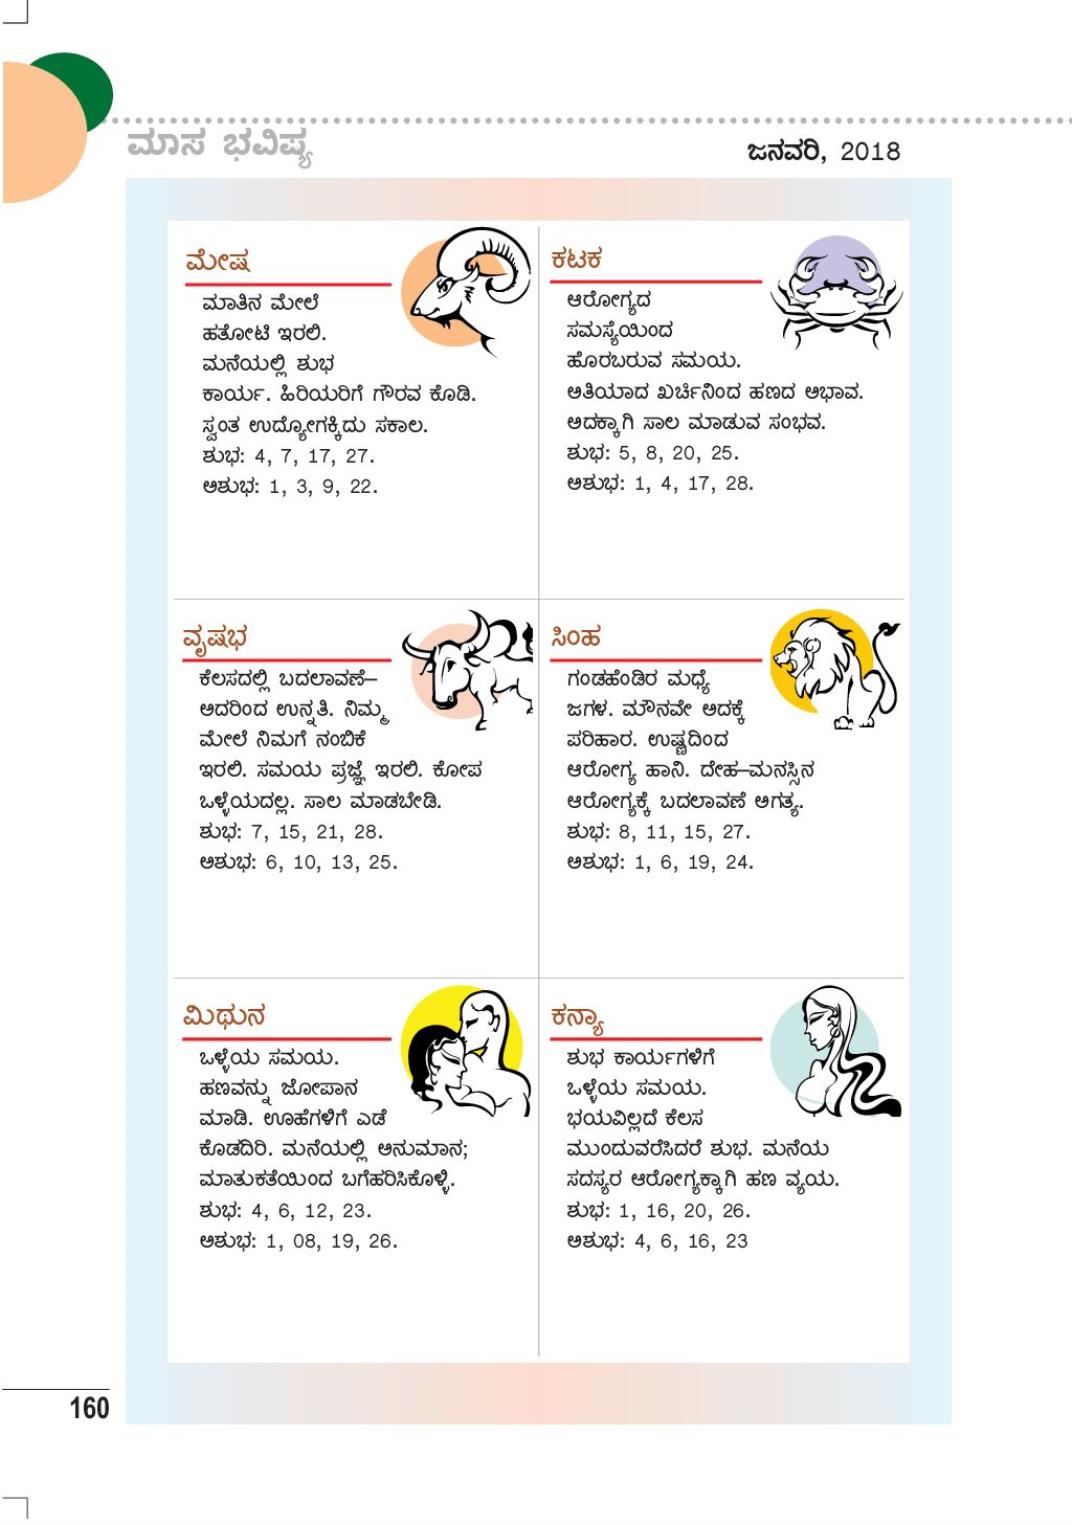 ಮಾಸ ಭವಿಷ್ಯ
ಜನವರಿ, 2018
ಮೇಷ
ಮಾತಿನ ಮೇಲೆ
ಹತೋಟಿ ಇರಲಿ.
ಮನೆಯಲ್ಲಿ ಶುಭ
ಕಾರ್ಯ. ಹಿರಿಯರಿಗೆ ಗೌರವ ಕೊಡಿ.
ಸ್ವಂತ ಉದ್ಯೋಗಕ್ಕಿದು ಸಕಾಲ.
ಶುಭ: 4, 7, 17, 27.
ಅಶುಭ: 1, 3, 9, 22.
ವೃಷಭ
ಕೆಲಸದಲ್ಲಿ ಬದಲಾವಣೆ–
ಅದರಿಂದ ಉನ್ನತಿ. ನಿಮ್ಮ
ಮೇಲೆ ನಿಮಗೆ ನಂಬಿಕೆ
ಇರಲಿ. ಸಮಯ ಪ್ರಜ್ಞೆ ಇರಲಿ. ಕೋಪ
ಒಳ್ಳೆಯದಲ್ಲ. ಸಾಲ ಮಾಡಬೇಡಿ.
ಶುಭ: 7, 15, 21, 28.
ಅಶುಭ: 6, 10, 13, 25.
ಮಿಥುನ
ಒಳ್ಳೆಯ ಸಮಯ.
ಹಣವನ್ನು ಜೋಪಾನ
ಮಾಡಿ. ಊಹೆಗಳಿಗೆ ಎಡೆ
ಕೊಡದಿರಿ. ಮನೆಯಲ್ಲಿ ಅನುಮಾನ;
ಮಾತುಕತೆಯಿಂದ ಬಗೆಹರಿಸಿಕೊಳ್ಳಿ.
ಶುಭ: 4, 6, 12, 23.
ಅಶುಭ: 1, 08, 19, 26.
ಕಟಕ
ಆರೋಗ್ಯದ
ಸಮಸ್ಯೆಯಿಂದ
ಹೊರಬರುವ ಸಮಯ.
ಅತಿಯಾದ ಖರ್ಚಿನಿಂದ ಹಣದ ಅಭಾವ.
ಅದಕ್ಕಾಗಿ ಸಾಲ ಮಾಡುವ ಸಂಭವ.
ಶುಭ: 5, 8, 20, 25.
ಅಶುಭ: 1, 4, 17, 28.
ಸಿಂಹ
ಗಂಡಹೆಂಡಿರ ಮಧ್ಯೆ
ಜಗಳ. ಮೌನವೇ ಅದಕ್ಕೆ
ಪರಿಹಾರ. ಉಷ್ಣದಿಂದ
ಆರೋಗ್ಯ ಹಾನಿ. ದೇಹ–ಮನಸ್ಸಿನ
ಆರೋಗ್ಯಕ್ಕೆ ಬದಲಾವಣೆ ಅಗತ್ಯ.
ಶುಭ: 8, 11, 15, 27.
ಅಶುಭ: 1, 6, 19, 24.
ಕನ್ಯಾ
ಶುಭ ಕಾರ್ಯಗಳಿಗೆ
ಒಳ್ಳೆಯ ಸಮಯ.
ಭಯವಿಲ್ಲದೆ ಕೆಲಸ
ಮುಂದುವರೆಸಿದರೆ ಶುಭ. ಮನೆಯ
ಸದಸ್ಯರ ಆರೋಗ್ಯಕ್ಕಾಗಿ ಹಣ ವ್ಯಯ.
ಶುಭ: 1, 16, 20, 26.
ಅಶುಭ: 4, 6, 16, 23
160